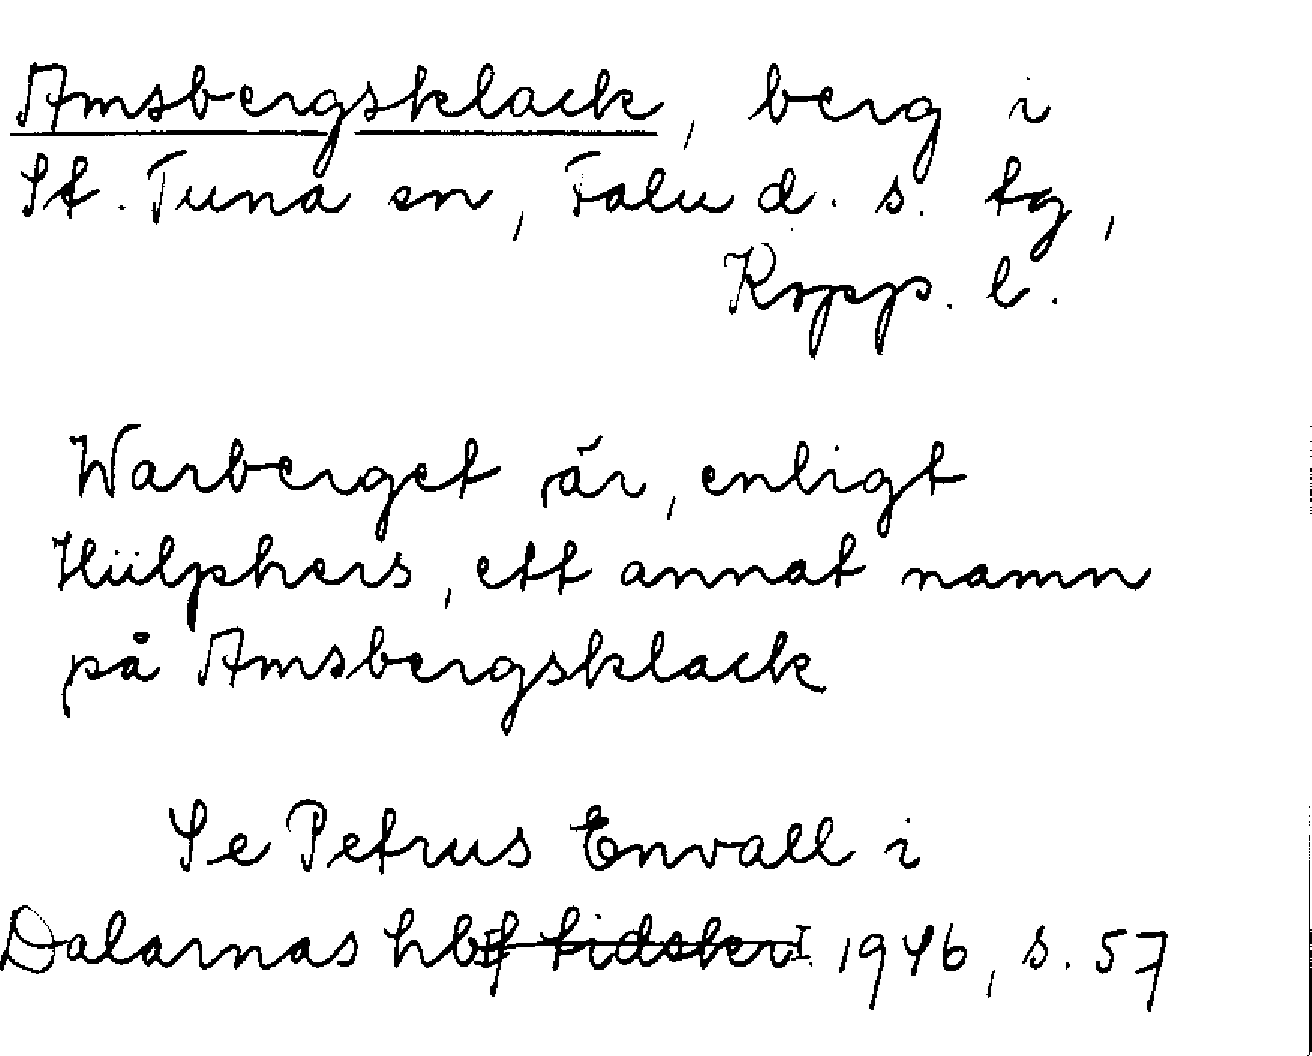 Amsbergsklack, berg i
St. Tuna sn, Falu d. s. tg,
Kopp. l.
Warberget är, enligt
Hülphers, ett annat namn
på Amsbergsklack
Se Petrus Envall i
Dalarnas hbf tidskr. 1946, s. 57